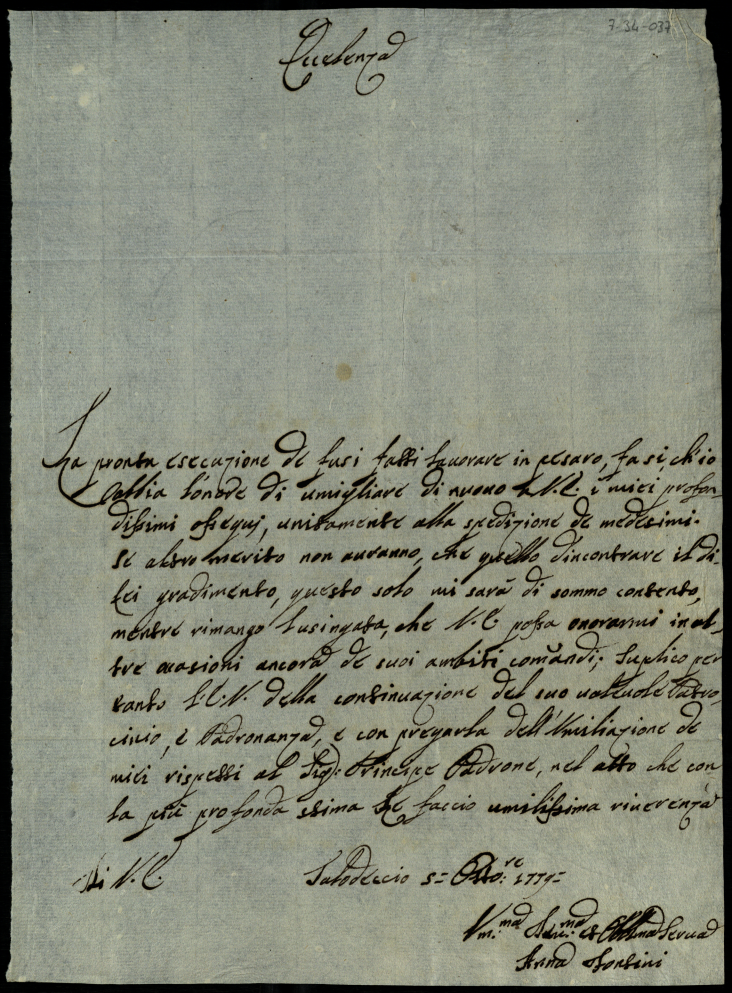 7-34-037
Eccelenza
La pronta esecuzione de fusi fatti lauorare in pesaro, fa si, ch'io
abbia l'onore di umigliare di nuouo a V.E. i miei profon-
dissimi ossequj, unitamente alla spedizione de medesimi.
Se altro merito non auranno, che quello d'incontrare il di
Lei gradimento, questo solo mi sarà di sommo contento,
mentre rimango lusingata, che V.E. possa onorarmi in al-
tre ocasioni ancora de suoi ambiti comandi; Suplico per
tanto l'E.V. della continuazione del suo ualeuole Patro-
cinio, e Padronanza, e con pregarla dell'Umiliazione de
miei rispetti al Sig.r Principe Padrone, nel atto che con
la più profonda stima Le faccio umilissima riuerenza
Di V.E.
Saludeccio 5= Otto:re 1779=
Um:ma Deu:ma et Obbma Serua
Anna